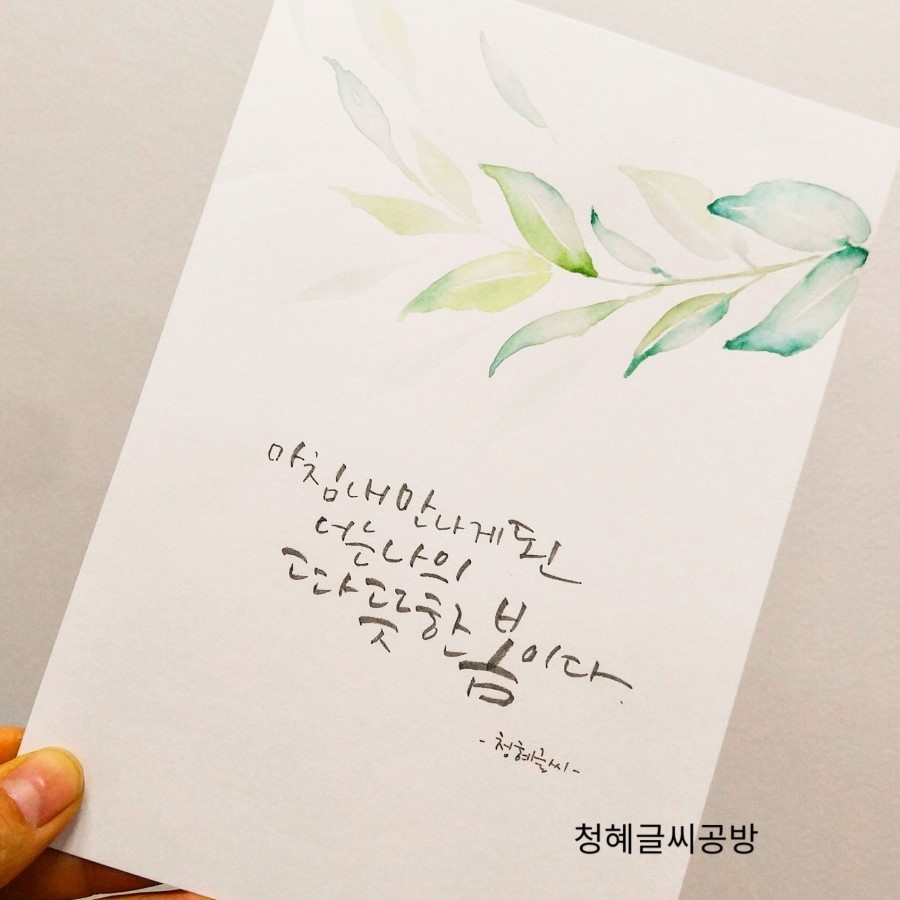 마침내 만나게 된
너는 나의
따뜻한 봄이다.
-청혜글씨-
청혜글씨공방